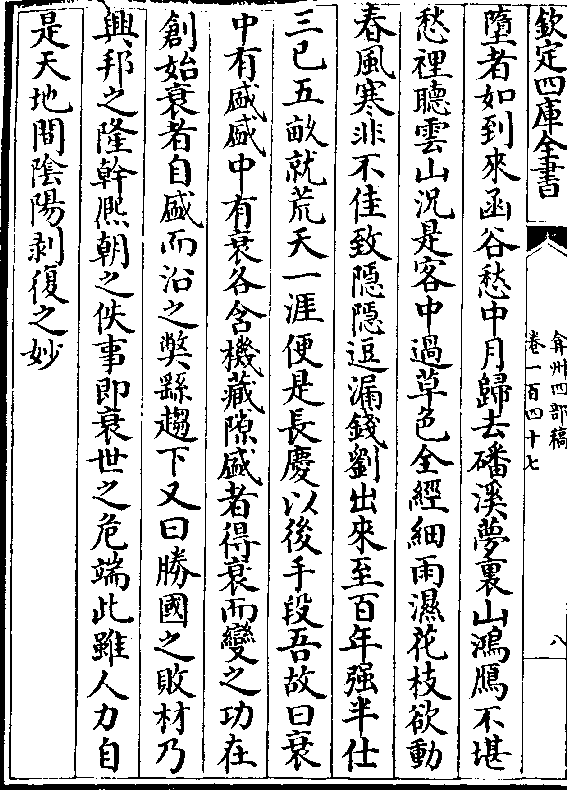 欽定四庫全書
弇州四部稿
卷一百四十七
八
墮者如到來函谷愁中月歸去磻溪夢裏山鴻鴈不堪
愁裡聽雲山況是客中過草色全經細雨濕花枝欲動
春風寒非不佳致隱隱逗漏錢劉出來至百年强半仕
三已五畝就荒天一涯便是長慶以後手段吾故曰衰
中有盛盛中有衰各含機藏隙盛者得衰而變之功在
創始衰者自盛而沿之弊繇趨下又曰勝國之敗材乃
興邦之隆幹熈朝之佚事即衰世之危端此雖人力自
是天地間隂陽剥復之妙